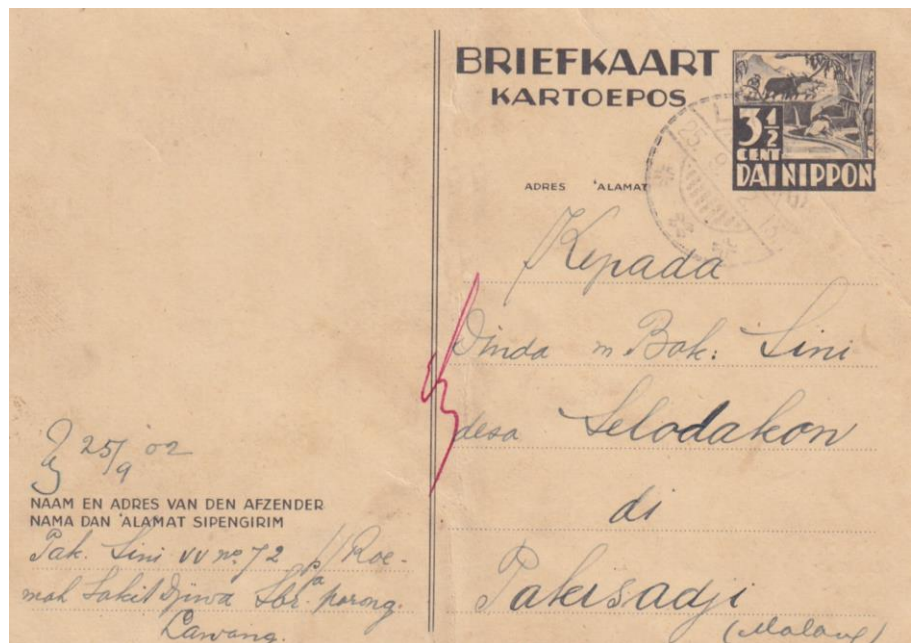 BRIEFKAART
KARTOEPOS
3½
CENT
DAI NIPPON
ADRES 'ALAMAT
Kepada
Dinda m Bok: Sini
desa Selodakon
di
Pakisadji
(Malang)
25/9 02
NAAM EN ADRES VAN DEN AFZENDER
NAMA DAN 'ALAMAT SIPENGIRIM
Pak. Sini VV no. 72 p/a Roe-
mah Sakit Djiwa Sbr. porong.
Lawang.